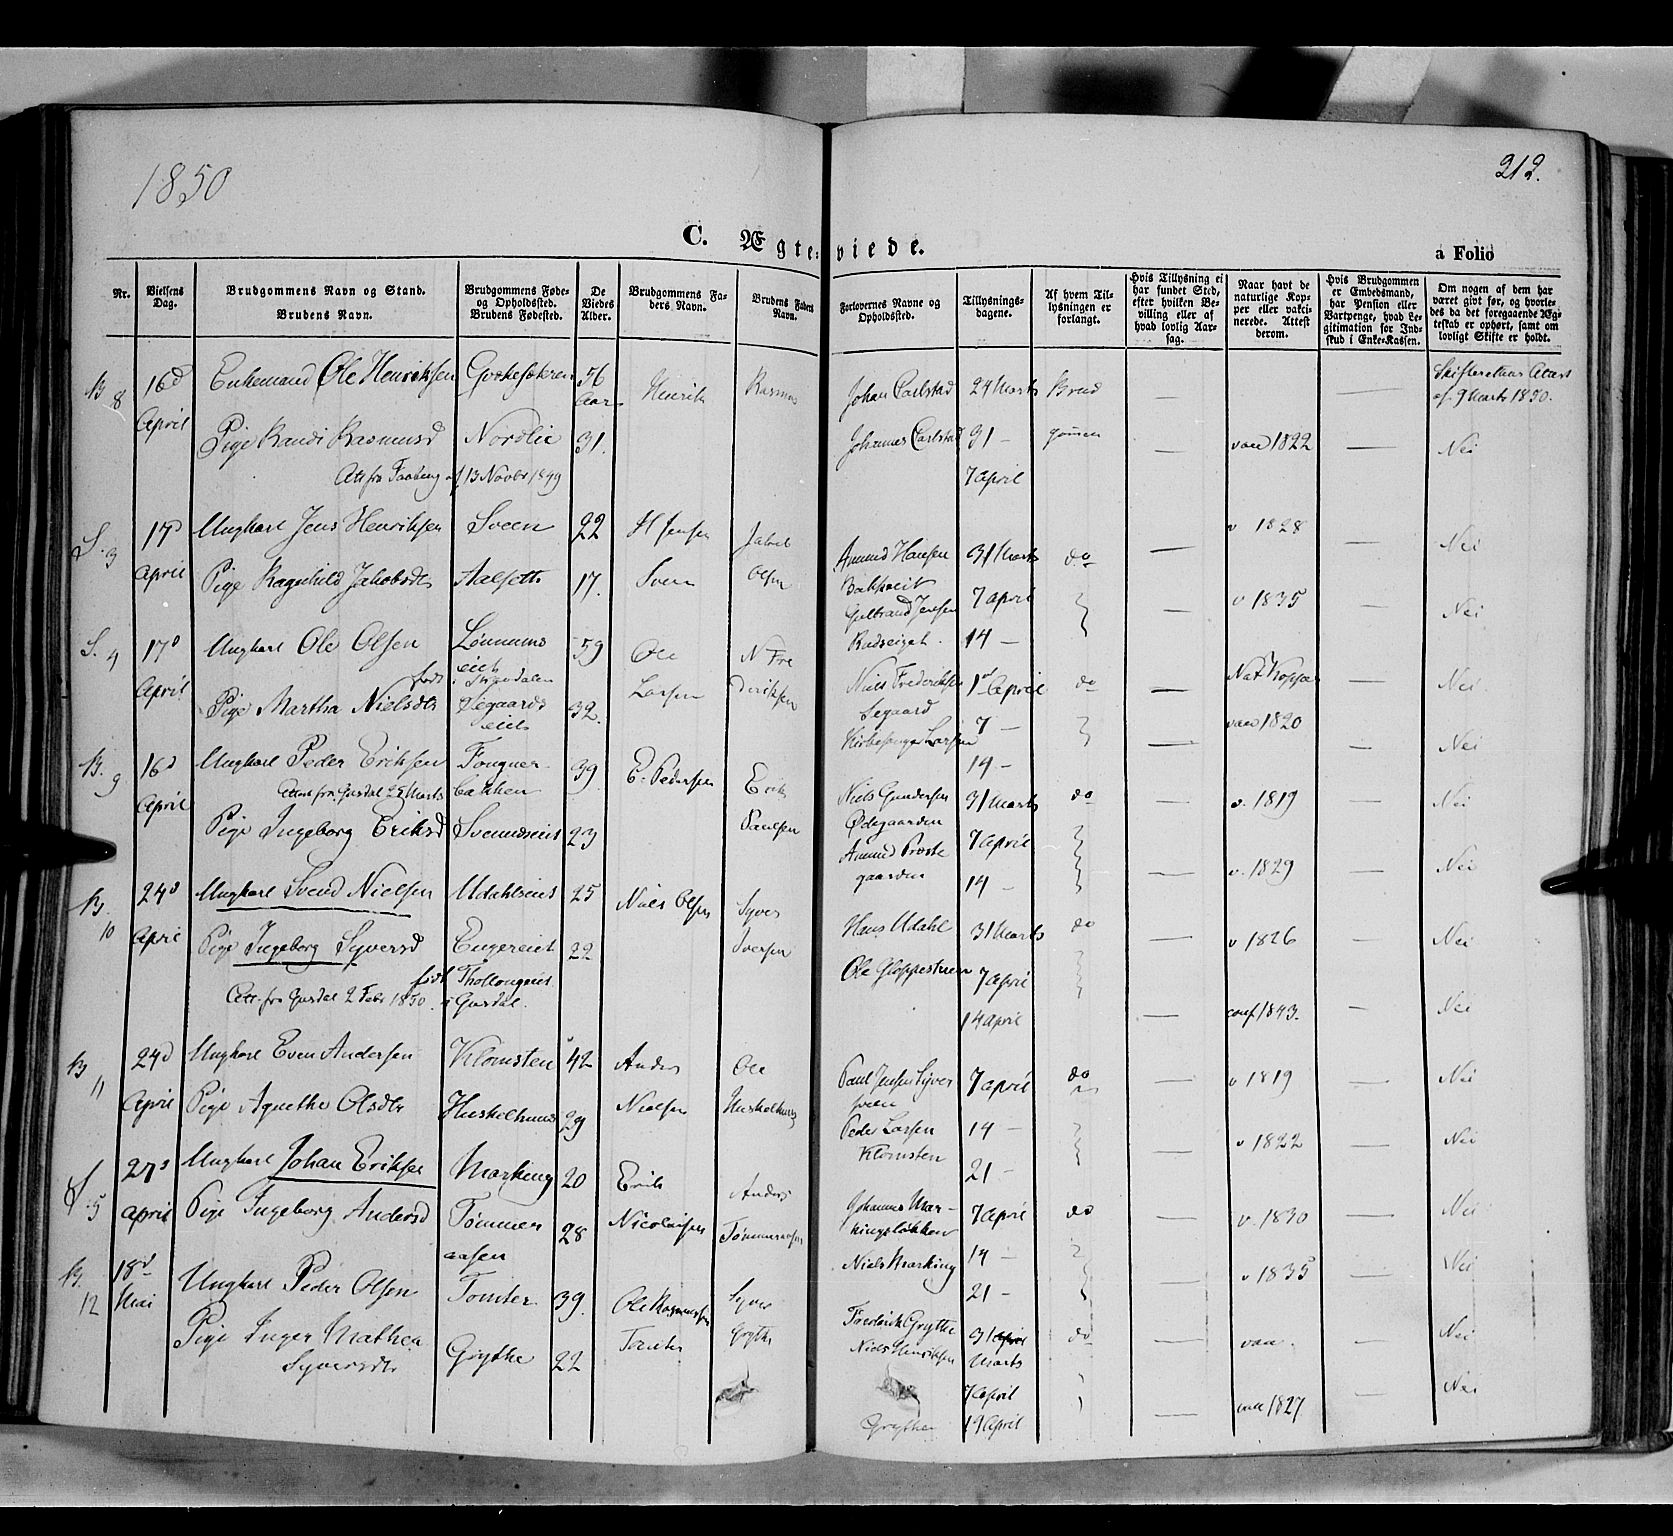 1850
212.
C. Ægteviede.
a Folio
Nr.
Vielsens Dag.
Brudgommens Navn og Stand.
Brudens Navn.
Brudgommens Føde- og Opholdssted.
Brudens Fødested.
De Viedes Alder.
Brudgommens Faders Navn.
Brudens Faders Navn.
Forlovernes Navne og Opholdssted.
Tillysningsdagene.
Af hvem Tillysningen er forlangt.
Hvis Tillysning ei har fundet Sted, efter hvilken Bevilling eller af hvad lovlig Aarsag.
Naar havt de naturlige Kopper eller vaccinerede. Attest derom.
Hvis Brudgommen er Embedsmand, har Pension eller Vartpenge, hvad Legitimation for Indskud i Enke-Kassen.
Om nogen af dem har været givt før, og hvorledes da det foregaaende Ægteskab er ophørt, samt om lovligt Skifte er holdt.
B 8 16d April Enkemand Ole Henriksen 56 Aar Henrik Rasmus Johan Carlstad 24 Marts Brud
af 9 Marts 1850.
Pige Randi Rasmusd Nordlie 31. Johannes Carlstad 31 — gommen vac 1822 — Nei
Att fra Faaberg af 13 Novbr 1849 7 April
S. 3 17d April Ungkarl Jens Henriksen Sveen 22 H Jensen Jakob Amund Hansen 31 Marts do — v 1828 — Nei
Pige Ragnhild Jakobsdtr Aalseth 17. Sveen Olsen 7 April — v 1835 — Nei
Gulbrand Jensen
14 —
S. 4 17d April Ungkarl Ole Olsen 59 Ole N Fre Niels Frederiksen 1ste April do — Nat Kopper — Nei
født
Pige Martha Nielsdtr Segaards eiet 32. Larsen deriksen Segaard 7 — vac 1820 — Nei
Kirkesanger Larsen
14 —
B. 9 16d April Ungkarl Peder Eriksen Fougner bakken 39 E. Pedersen Erik Niels Gundersen 31 Marts do — v. 1819 — Nei
Attest fra Gusdal 25 Marts
Ødegaarden
Pige Ingeborg Eriksd Svenneseiet 23 Paulsen Amund Præste gaarden 7 April — v. 1829 — Nei
14 —
B. 10 24d April Ungkarl Svend Nielsen Udahlseiet 25 Niels Olsen Syver Hans Udahl 31 Marts do — v 1826 — Nei
Pige Ingeborg Syversd Engereiet 22 Iversen Ole Gloppestuen 7 April
født
Att. fra Gusdal 2 Febr 1850. i Gusdal. 14 April — conf 1843. — Nei
B 11 24d April Ungkarl Even Andersen Klomsten 42 Anders Ole Paul Jensen Syver sveen 7 April do — v 1819 — Nei
Pige Agnethe Olsdtr Huskelhuus 29 Nielsen Huskelhuus Peder Larsen Klomsten 14 — v 1822 — Nei
21 —
S. 5 27d April Ungkarl Johan Eriksen Marking 20 Erik Anders Johannes Mar- kingsløkken 7 April do — v. 1830 — Nei
Pige Ingeborg Andersd Tømmer aasen 28 Nicolaisen Tømmeraasen Niels Marking 14 — v 1835 — Nei
21 —
B. 12 18d Mai Ungkarl Peder Olsen Tomter 39 Ole Rasmussen Syver Frederik Grythe 31 Marts do — vac. — Nei
Pige Inger Mathea Syversdtr Grythe 22 Tomter Grythe Niels Henriksen 7 April
Grythe 14 April — vac 1827 — Nei